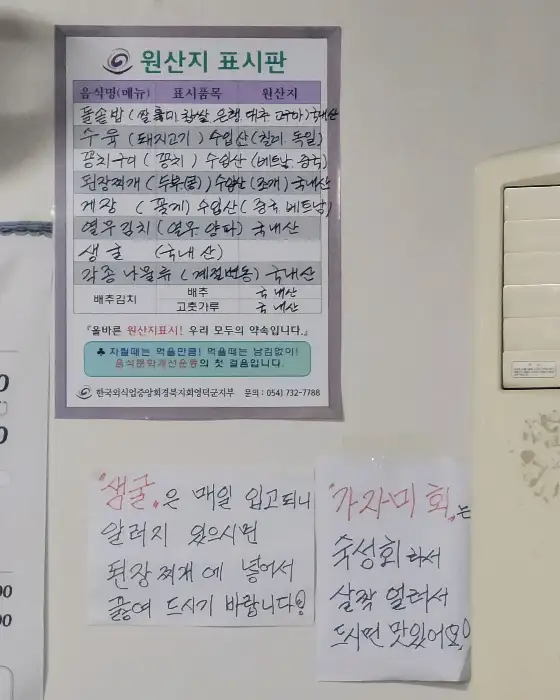 원산지 표시판
음식명(메뉴) 표시품목 원산지
돌솥밥 (쌀, 찹쌀, 은행, 대추) 국내산
수육 (돼지고기) 수입산 (칠레, 독일)
꽁치구이 (꽁치) 수입산 (베트남, 중국)
된장찌개 (두부(콩)) 수입산 (조개) 국내산
게장 (꽃게) 수입산 (중국, 베트남)
열무김치 (열무, 양파) 국내산
생굴 (국내산)
각종 나물류 (계절변동) 국내산
배추김치 배추 국내산
고춧가루 국내산
『올바른 원산지표시! 우리 모두의 약속입니다.』
♣ 차릴때는 먹을만큼! 먹을때는 남김없이!
음식문화개선운동의 첫 걸음입니다.
한국외식업중앙회경북지회영덕군지부 문의 : 054) 732-7788
"생굴"은 매일 입고되니
알러지 있으시면
된장찌개에 넣어서
끓여 드시기 바랍니다!
"가자미회"는
숙성회라서
살짝 얼려서
드시면 맛있어요!